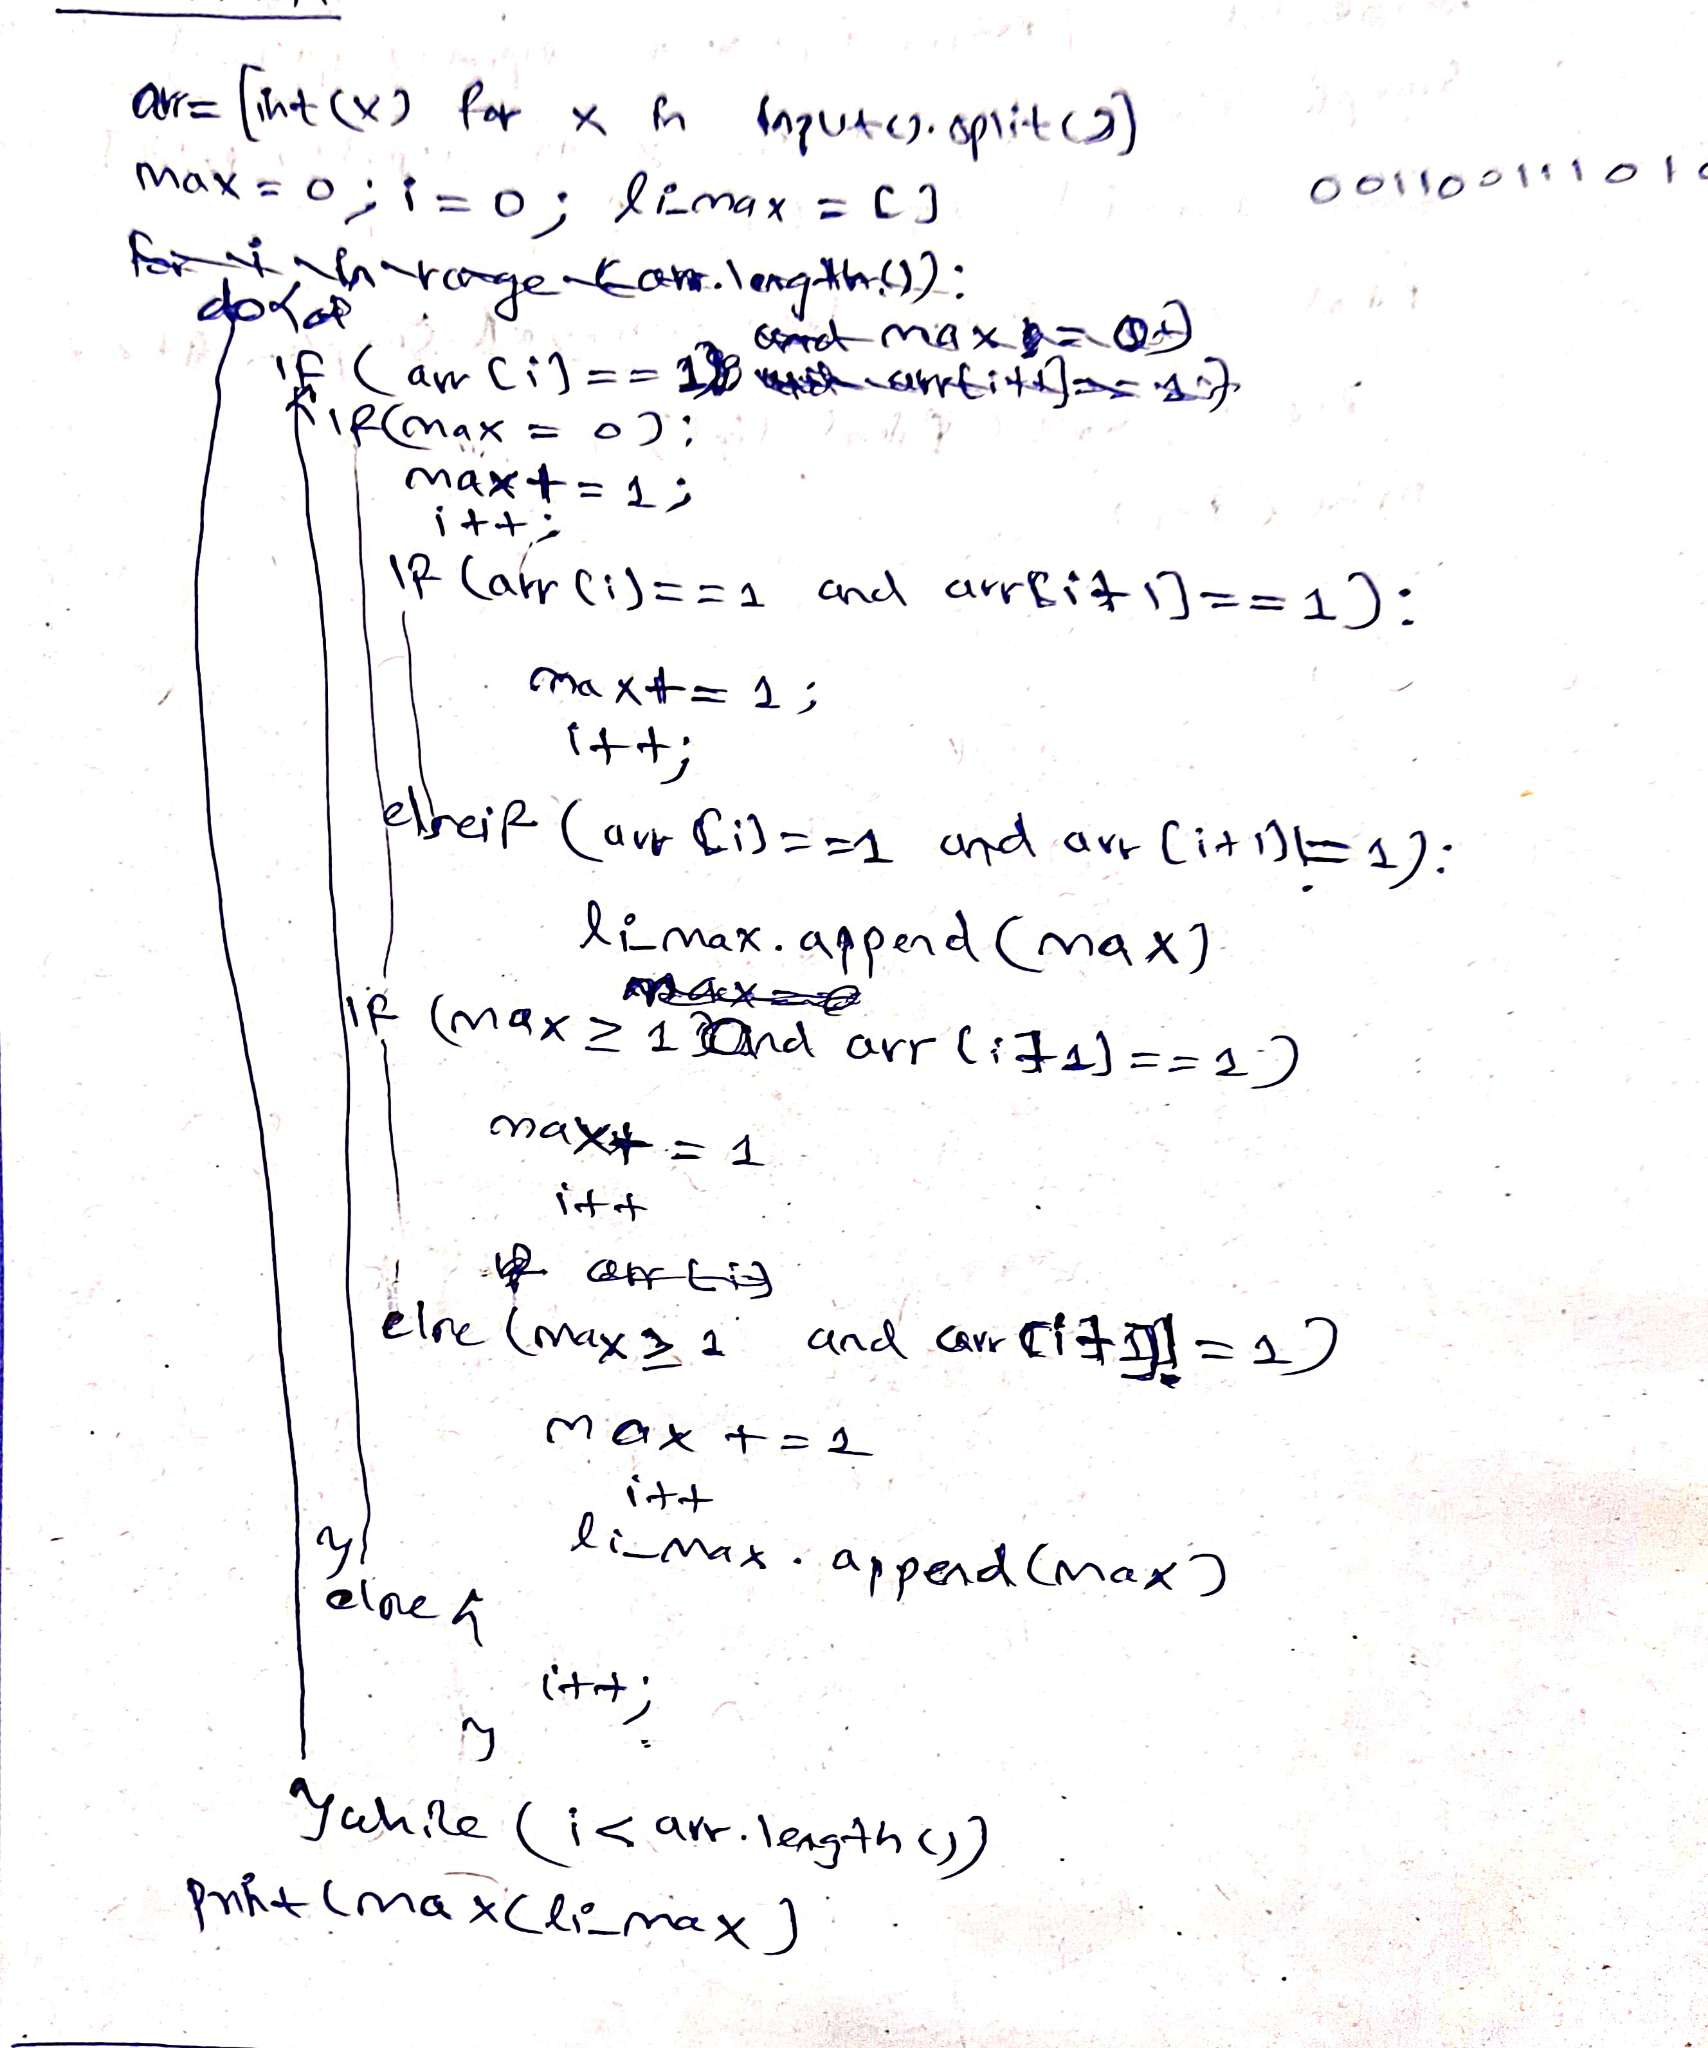 arr= [int(x) for x in input().split()]
max=0; i=0; li_max = []
001100111010
for i in range (arr.length()):
do{
and max = 0)
if (arr[i]==1) and arr[i+1]==1)
{ if(max = 0):
max+=1;
i++;
if (arr[i]==1 and arr[i+1]==1):
max+=1;
i++;
elseif (arr[i]==1 and arr[i+1]!=1):
li_max.append(max)
max=0
if (max ≥ 1 and arr[i+1]==1)
max+=1
i++
if arr[i]
else (max ≥ 1 and arr[i+1]!=1)
max +=1
i++
li_max.append(max)
}
else {
i++;
}
}while (i< arr.length())
print(max(li_max)